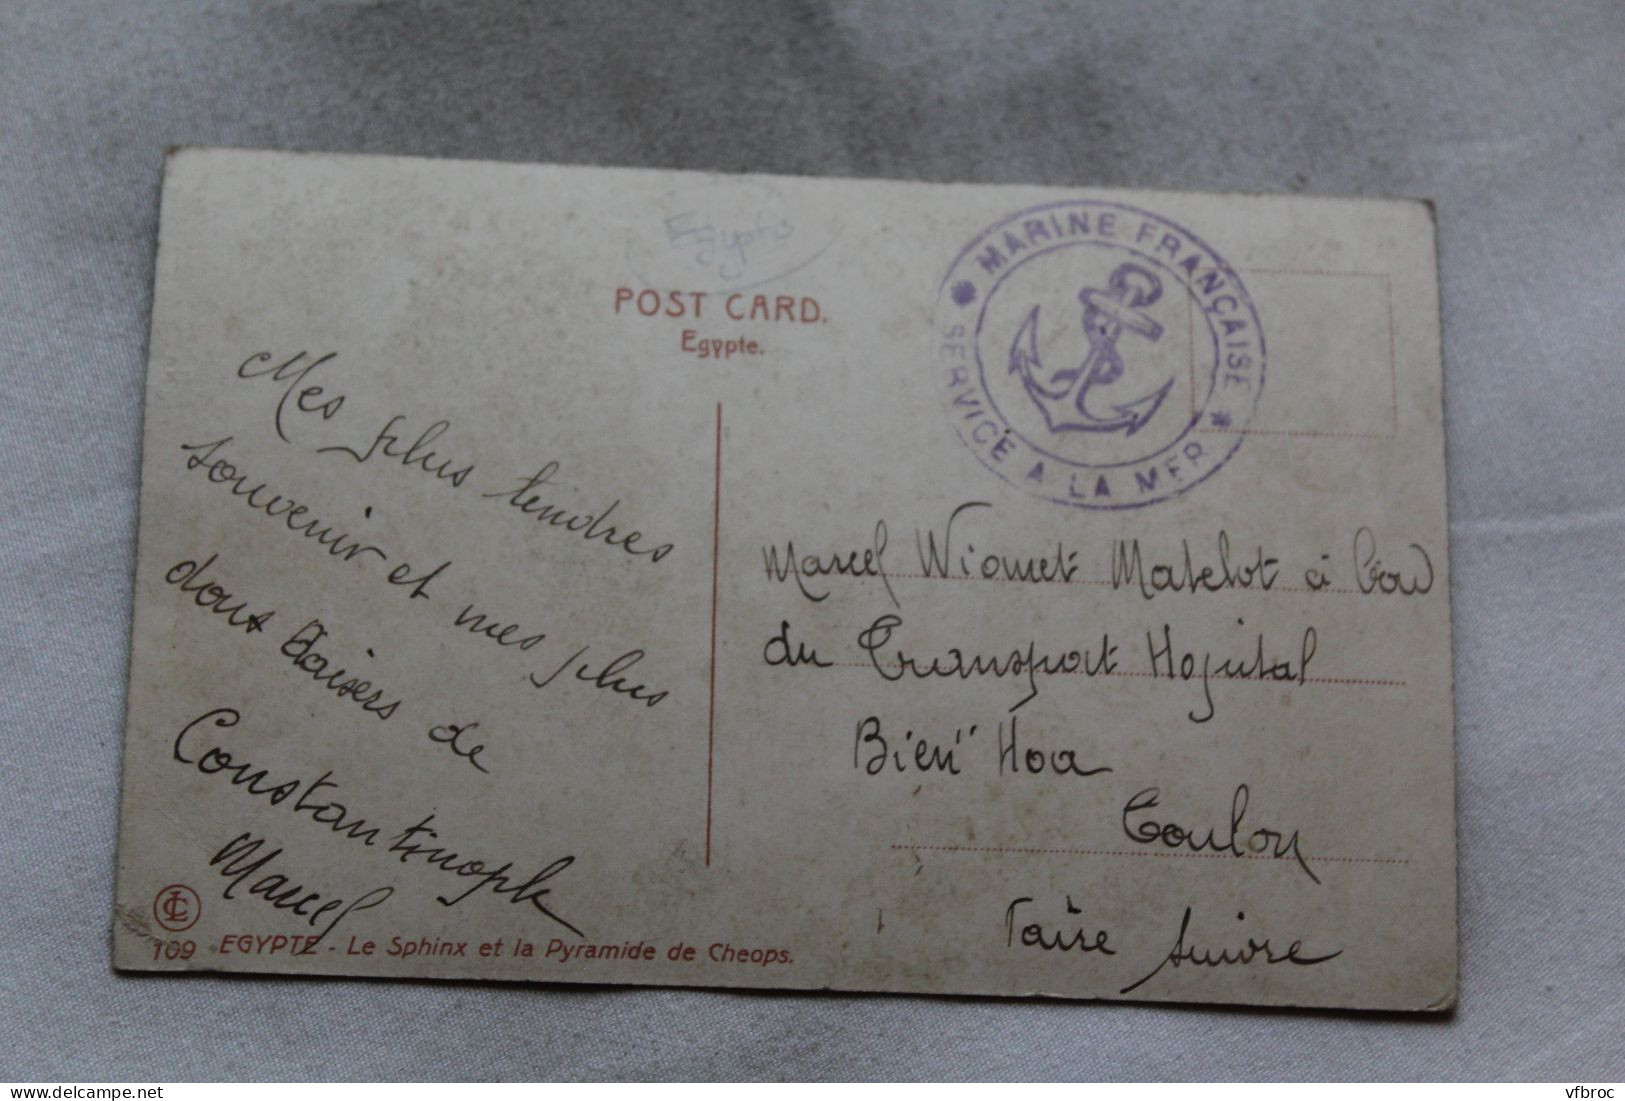 Egypte
POST CARD.
Egypte.
MARINE FRANÇAISE
SERVICE A LA MER
Mes plus tendres
souvenir et mes plus
doux Baisers de
Constantinople
Marcel
Marcel Matelot à
du Transport Hopital
Bien" Hoa
Toulon
Faire suivre
LC
109 EGYPTE - Le Sphinx et la Pyramide de Cheops.
vfbroc